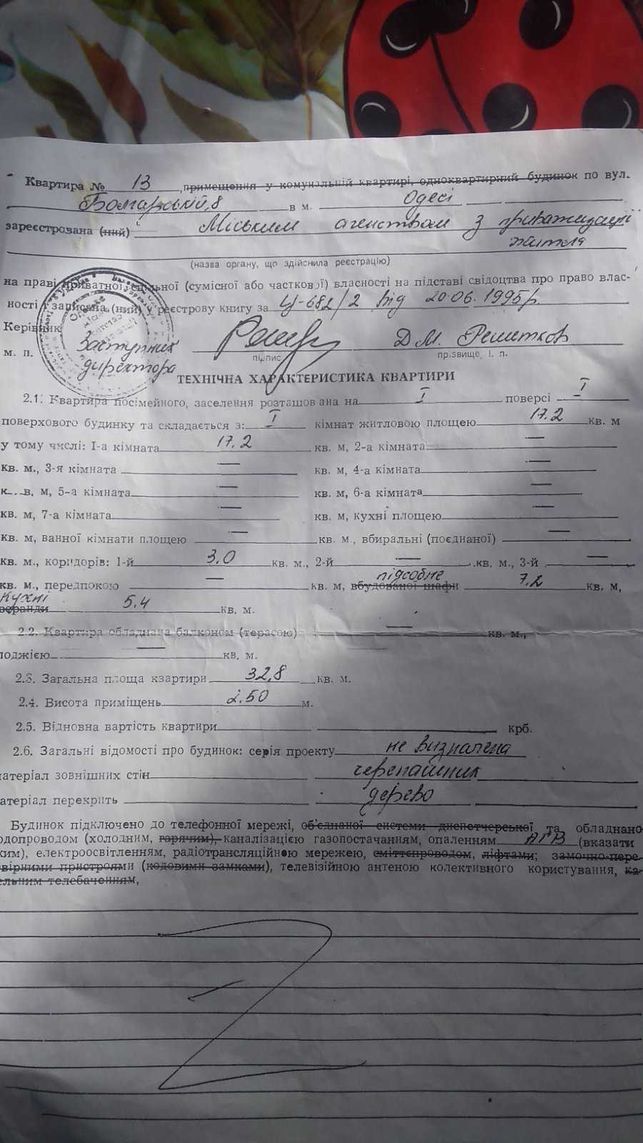 Квартира № 13 , примещення у комунальній квартирі, одноквартирний будинок по вул.
8 в м. Одесі
зареєстрована (ний) Міським агенством з приватизації
житла
(назва органу, що здійснила реєстрацію)
на праві приватної спільної (сумісної або часткової) власності на підставі свідоцтва про право влас-
ності і записана (ний) у реєстрову книгу за від 20.06.1995р
Керівник Д.М. Решетков
Заступник
директора
м. п. підпис прізвище, і. п.
ТЕХНІЧНА ХАРАКТЕРИСТИКА КВАРТИРИ
2.1. Квартира посімейного, заселення розташована на I поверсі — I
поверхового будинку та складається з: I кімнат житловою площею 17.2 кв. м
у тому числі: 1-а кімната 17.2 кв. м, 2-а кімната —
кв. м., 3-я кімната — кв. м, 4-а кімната —
кв, м, 5-а кімната — кв. м, 6-а кімната —
кв. м, 7-а кімната — кв. м, кухні площею —
кв. м, ванної кімнати площею — кв. м., вбиральні (поєднаної) —
кв. м., коридорів: 1-й 3,0 кв. м., 2-й — кв. м., 3-й —
підсобне
кв. м., передпокою — кв. м, вбудованої шафи 7.2 кв. м,
кухні
веранди 5.4 кв. м.
2.2. Квартира обладнана балконом (терасою) — кв. м.,
лоджією — кв. м.
2.3. Загальна площа квартири 32,8 кв. м.
2.4. Висота приміщень 2.50 м.
2.5. Відновна вартість квартири крб.
2.6. Загальні відомості про будинок: серія проекту не визначена
матеріал зовнішних стін черепашник
матеріал перекрить дерево
Будинок підключено до телефонної мережі, об'єднаної системи диспетчерської та обладнано
водопроводом (холодним, горячим), каналізацією газопостачанням, опаленням АГВ (вказати
яким), електроосвітленням, радіотрансляційною мережею, сміттєпроводом, ліфтами; замочно-пере-
вірними пристроями (кодовими замками), телевізійною антеною колективного користування, ка-
бельним телебаченням,